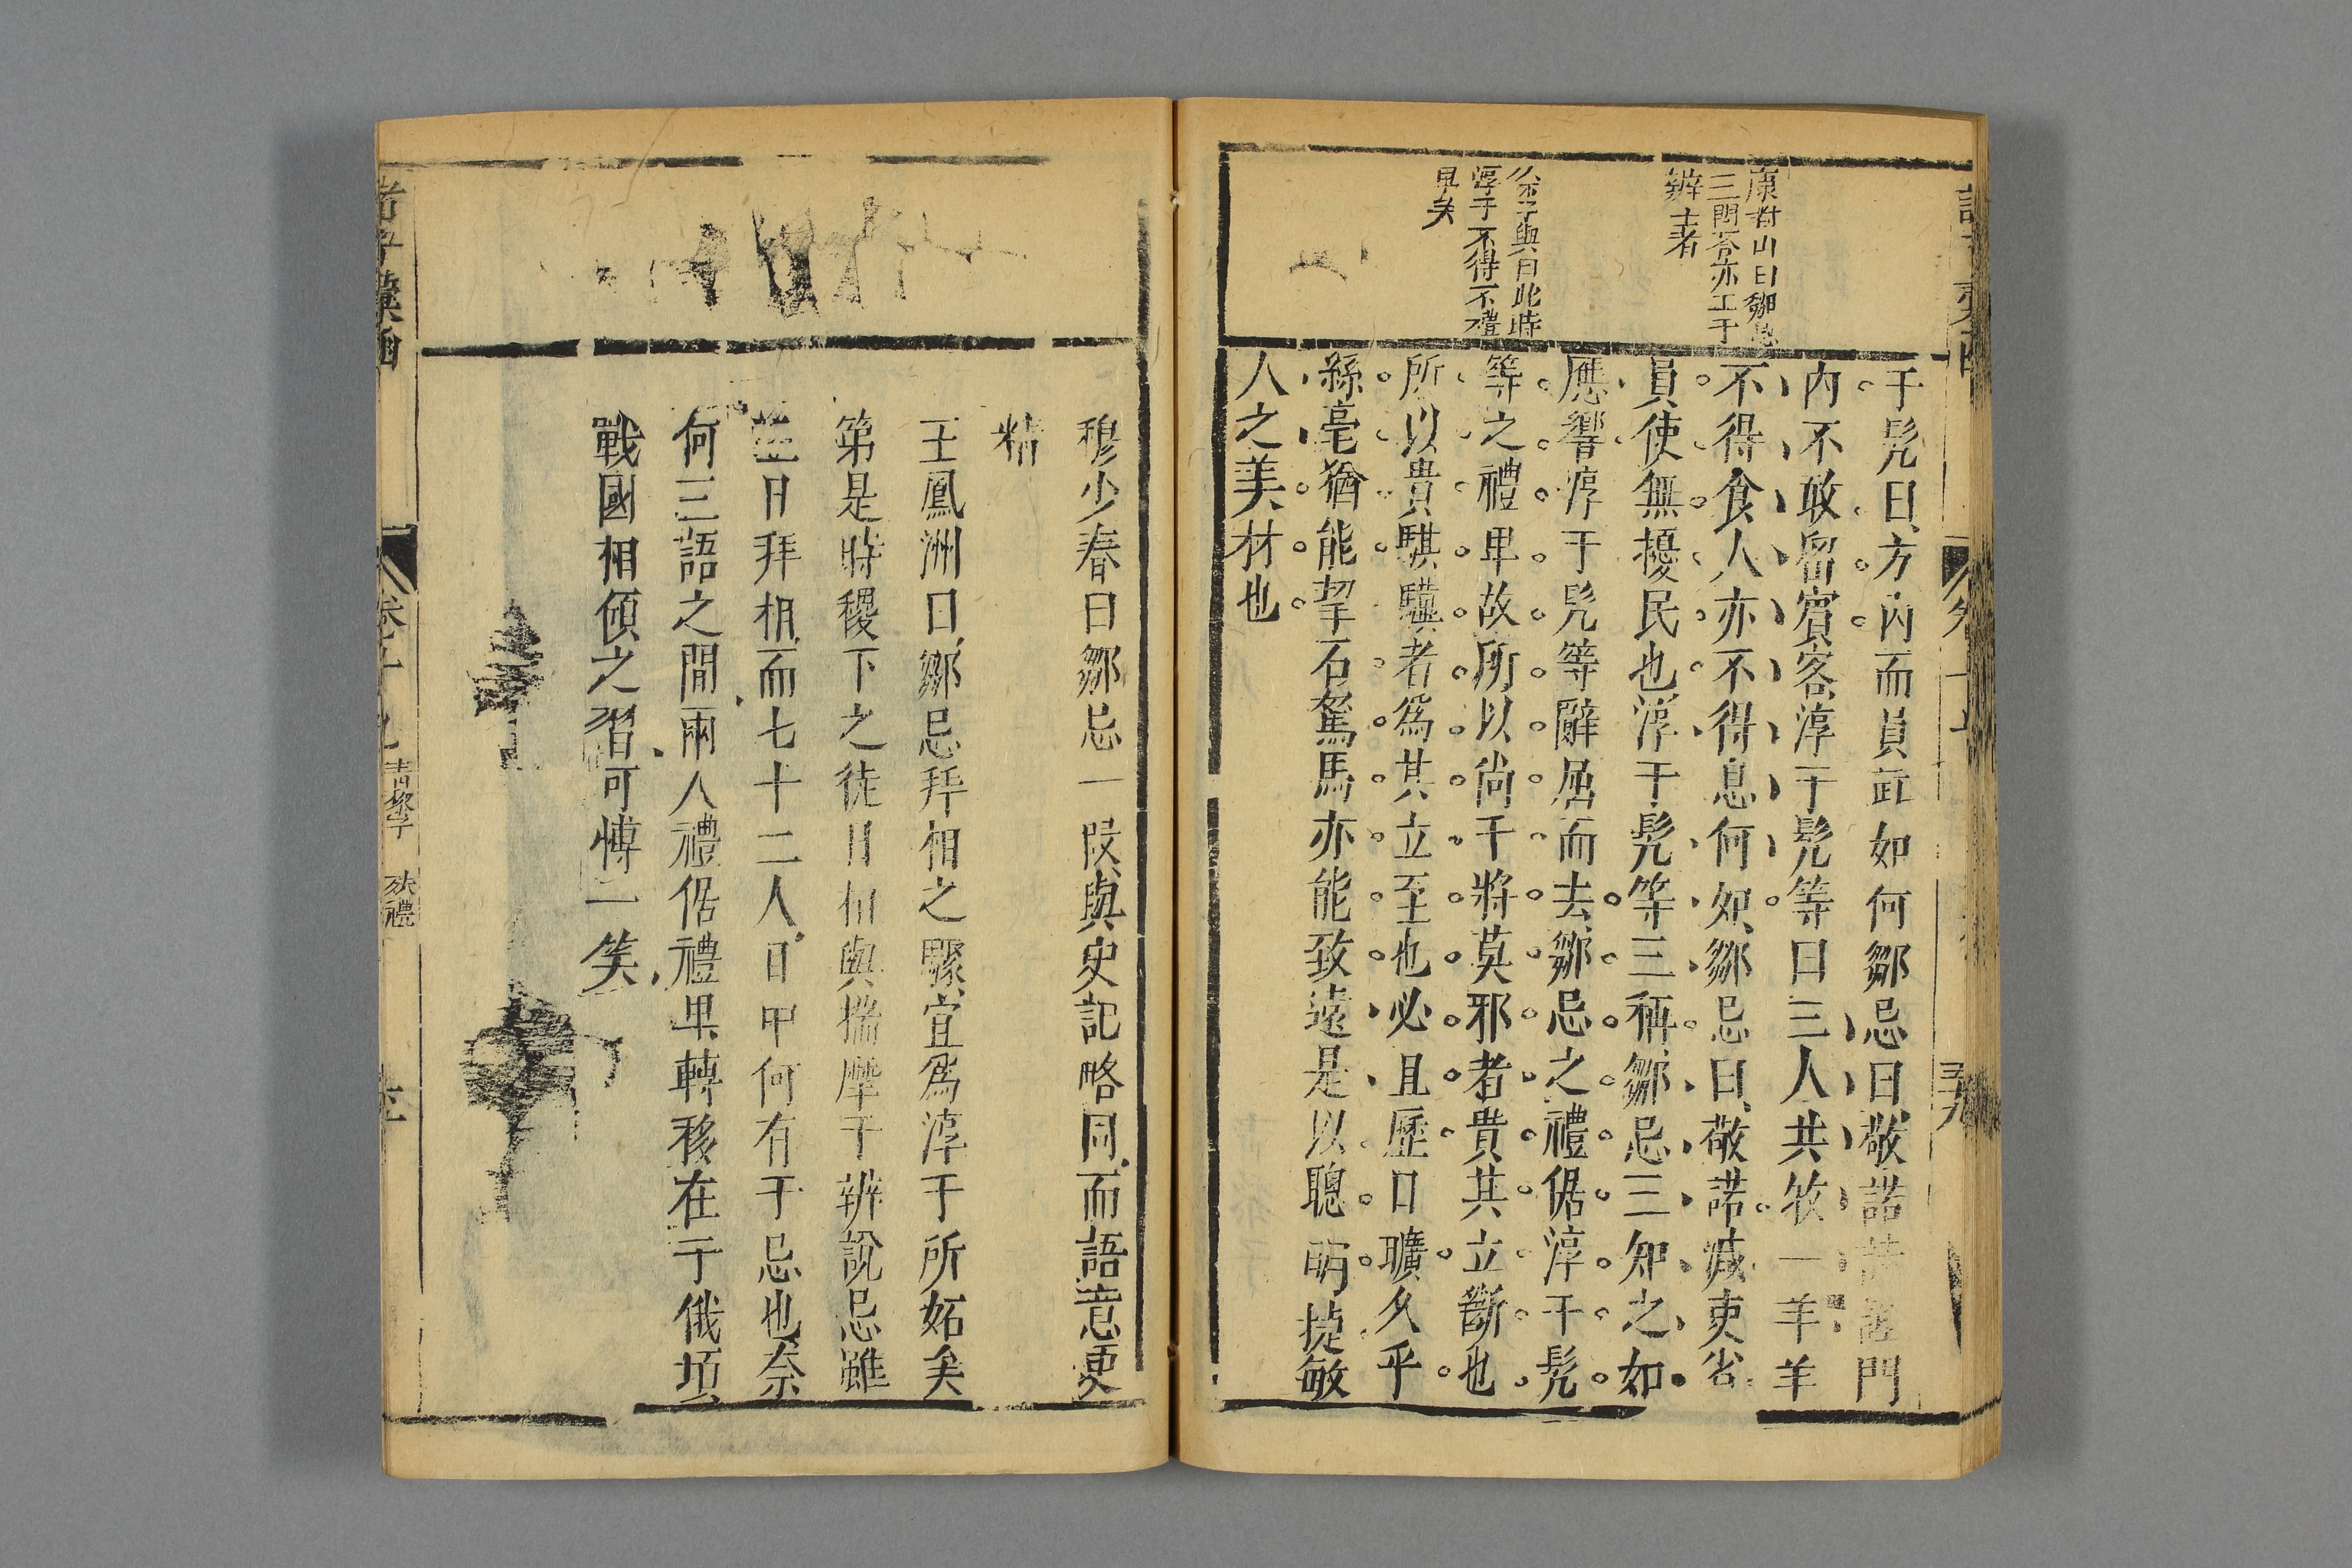 康對山曰鄒忌
三問荅亦工于
辨者
孫子與曰此時
淳于不得不禮
卑矣
于髠曰方內而員釭如何鄒忌曰敬諾請謹門
內不敢留賓客淳于髠等曰三人共牧一羊羊
不得食人亦不得息何如鄒忌曰敬諾減吏省
員使無擾民也淳于髠等三稱鄒忌三知之如
應響淳于髠等辭屈而去鄒忌之禮倨淳于髠
等之禮卑故所以尚干將莫邪者貴其立斷也
所以貴騏驥者爲其立至也必且歷日曠久乎
絲毫猶能挈石駑馬亦能致遠是以聰明捷敏
人之美材也
五十九
穆少春曰鄒忌一段與史記略同而語意更
精
王鳳洲曰鄒忌拜相之驟宜爲淳于所妬矣
第是時稷下之徒日相與揣摩于辨說忌雖
三日拜相而七十二人日甲何有于忌也奈
何三語之間兩人禮倨禮卑轉移在于俄頃
戰國相傾之習可博一笑
諸子彙函
卷十九
青藜子
失禮